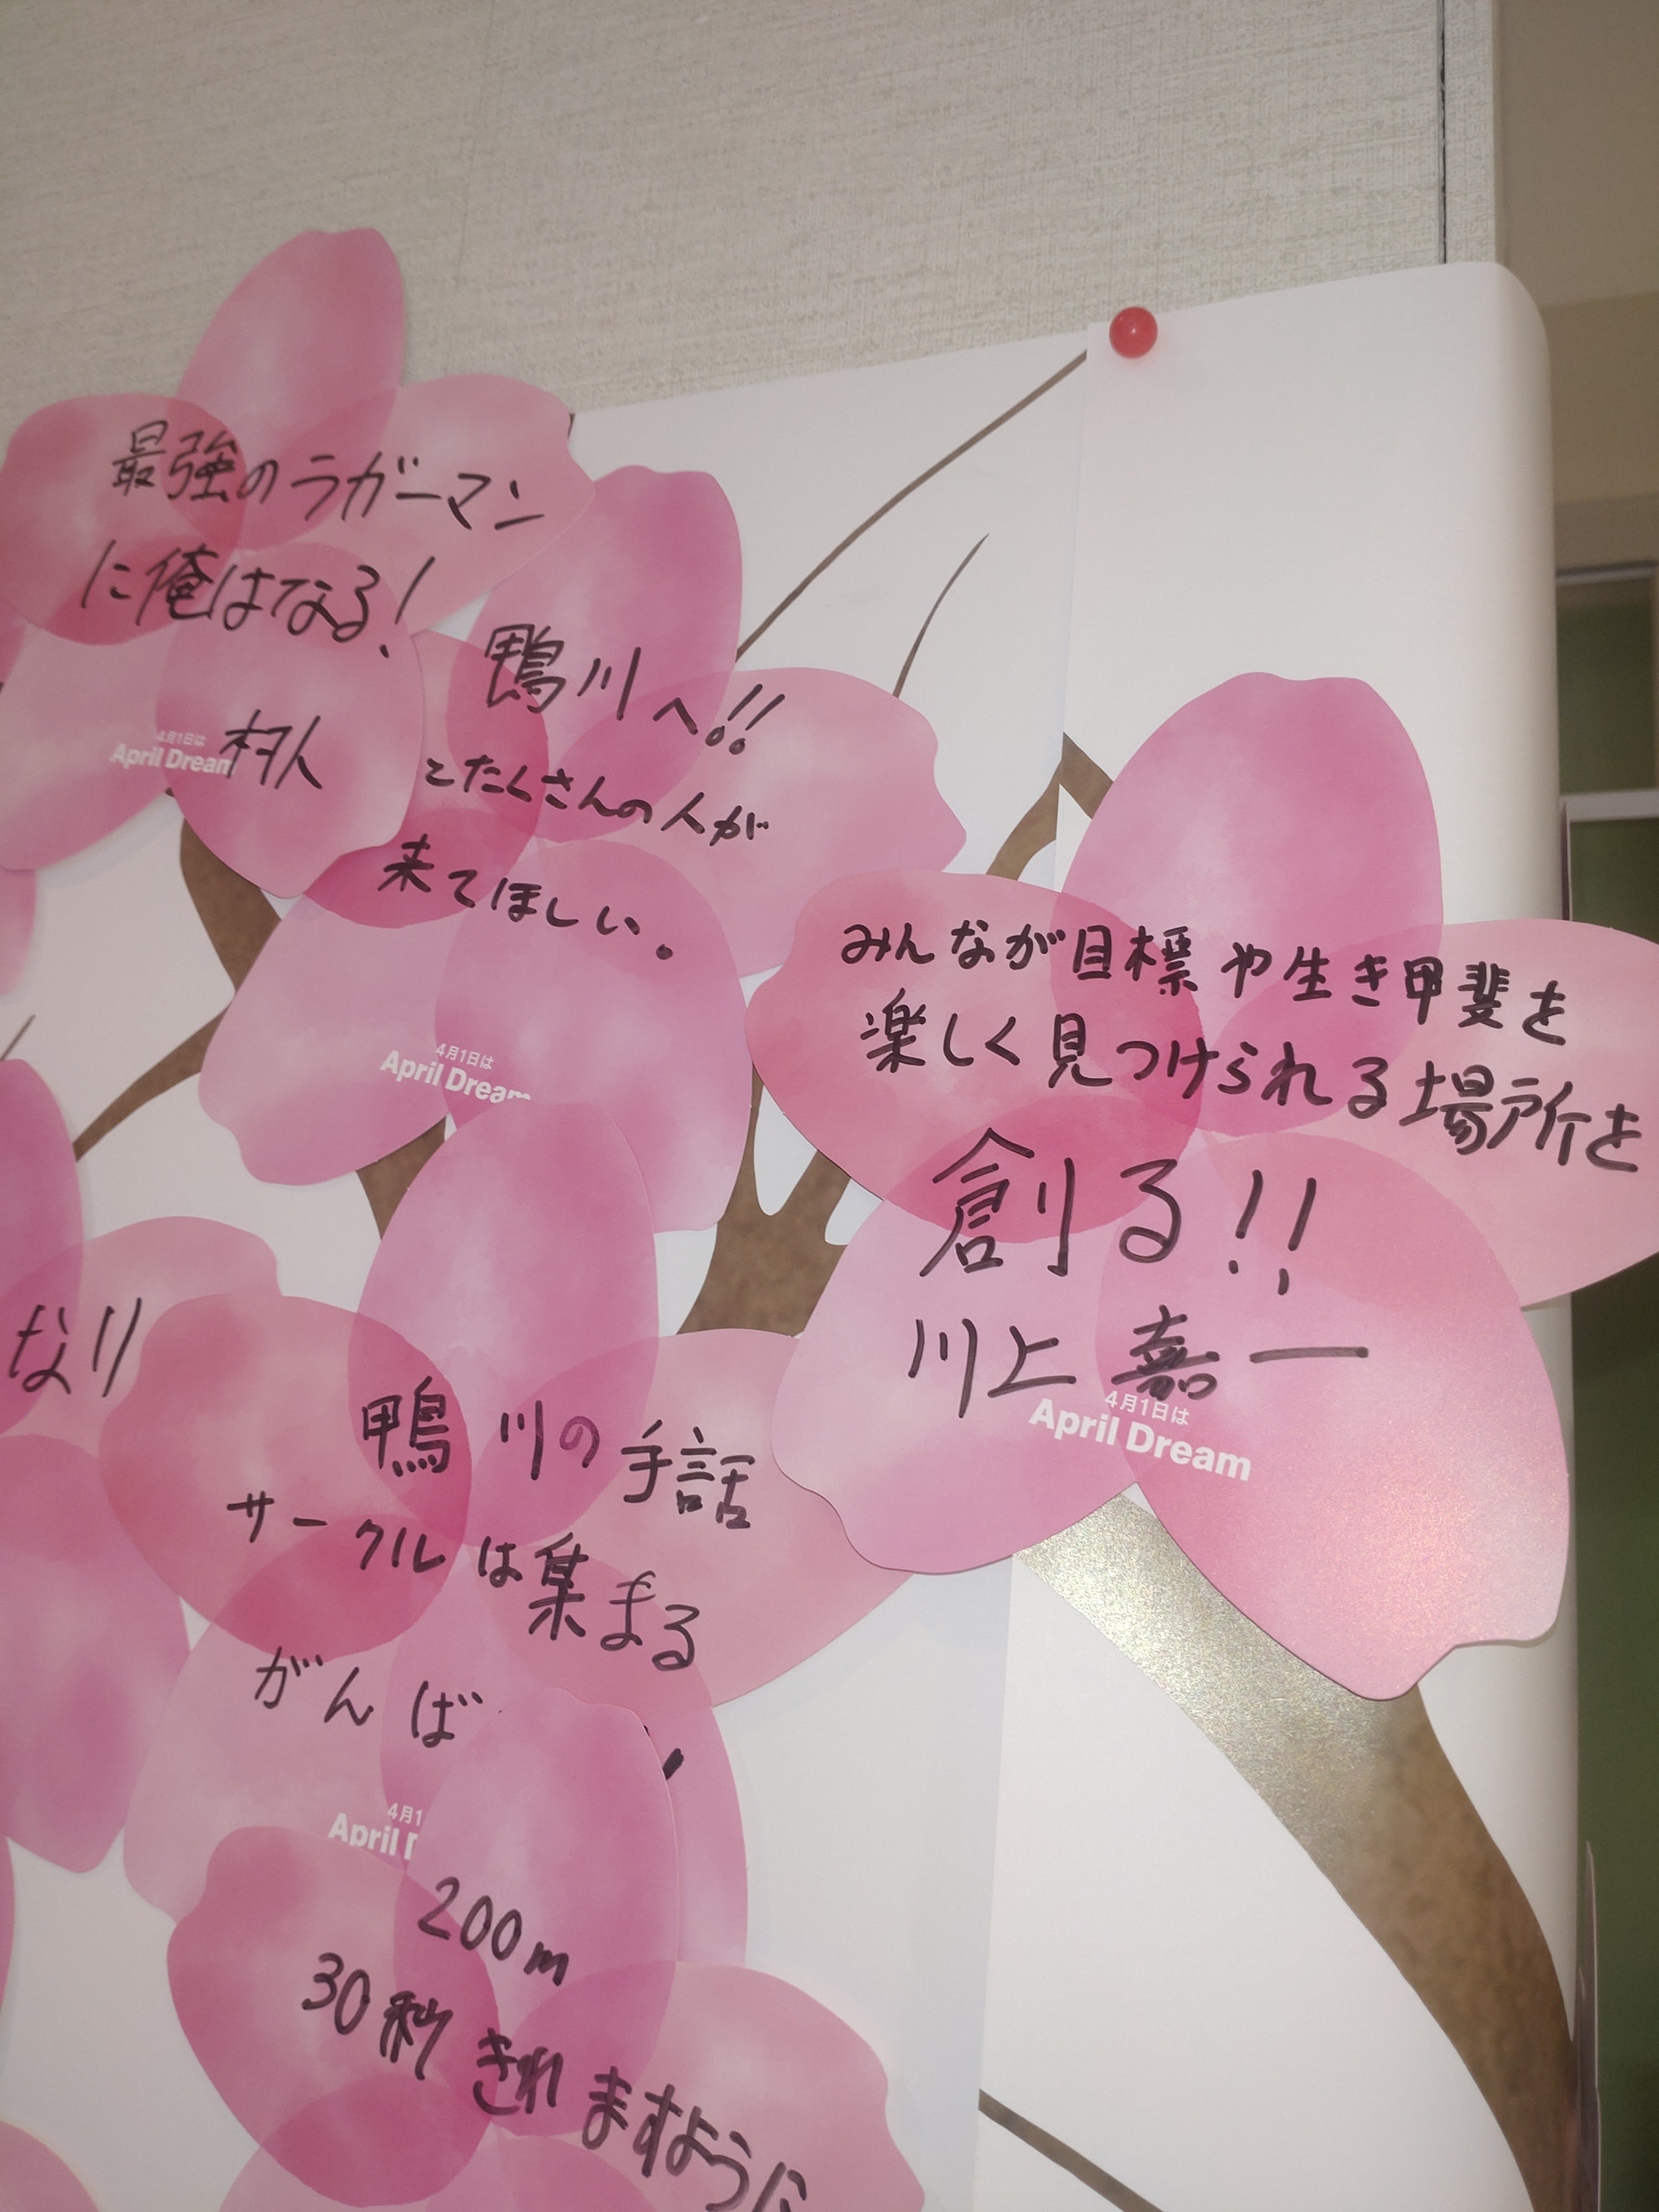 最強のラガーマン
に俺はなる!
4月1日は
April Dream
鴨川へ!!
たくさんの人が
来てほしい。
4月1日は
April Dream
みんなが目標や生き甲斐を
楽しく見つけられる場所を
創る!!
川上嘉一
4月1日は
April Dream
なり
鴨川の手話
サークルは集まる
がんば
4月1
April
200m
30秒きれますように